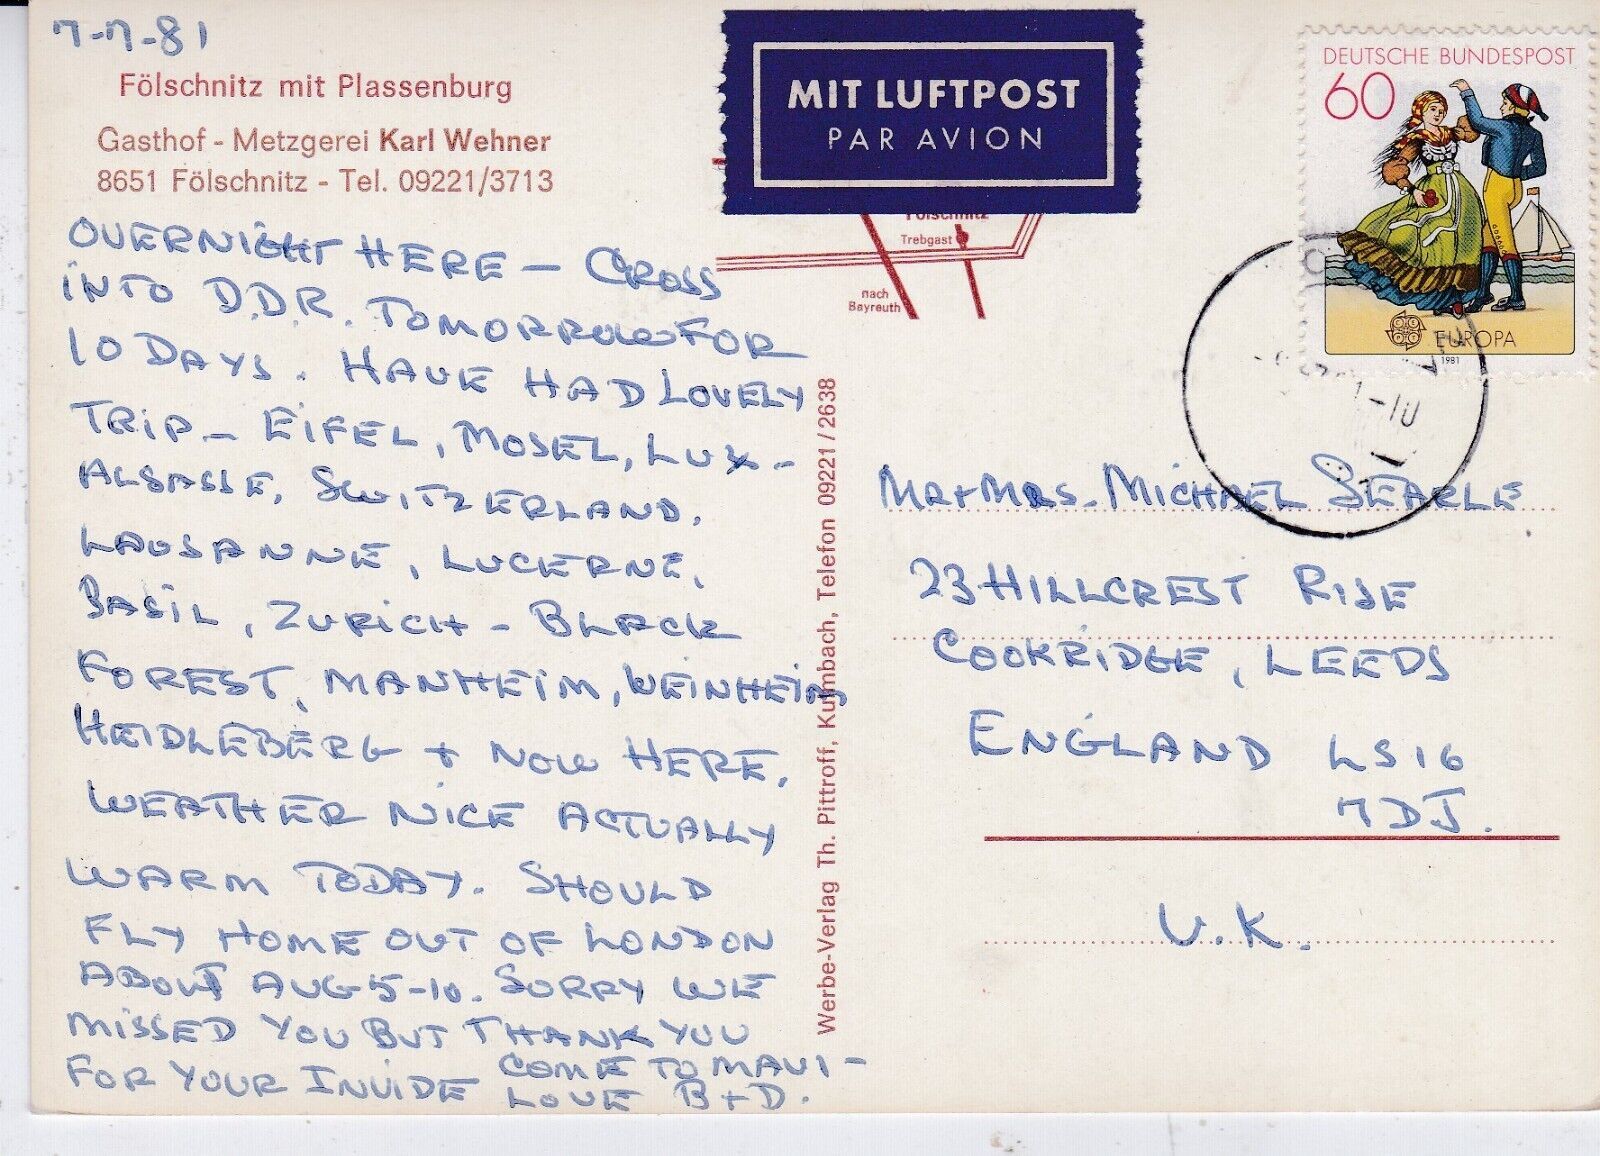 7-7-81
Fölschnitz mit Plassenburg
Gasthof - Metzgerei Karl Wehner
8651 Fölschnitz - Tel. 09221/3713
OVERNIGHT HERE - CROSS
INTO D.D.R. TOMORROW FOR
10 DAYS. HAVE HAD LOVELY
TRIP - EIFEL, MOSEL, LUX -
ALSASSE, SWITZERLAND,
LAUSANNE, LUCERNE,
BASIL, ZURICH - BLACK
FOREST, MANHEIM, WEINHEIM,
HEIDLEBERG + NOW HERE.
WEATHER NICE ACTUALLY
WARM TODAY. SHOULD
FLY HOME OUT OF LONDON
ABOUT AUG 5-10. SORRY WE
MISSED YOU BUT THANK YOU
FOR YOUR INVIDE COME TO MAUI -
LOVE B+D.
Werbe-Verlag Th. Pittroff, Kulmbach, Telefon 09221/2638
MIT LUFTPOST
PAR AVION
Fölschnitz
Trebgast
nach
Bayreuth
DEUTSCHE BUNDESPOST
60
EUROPA
1981
MR + MRS. MICHAEL SEARLE
23 HILLCREST RISE
COOKRIDGE, LEEDS
ENGLAND LS16
7DJ.
U.K.